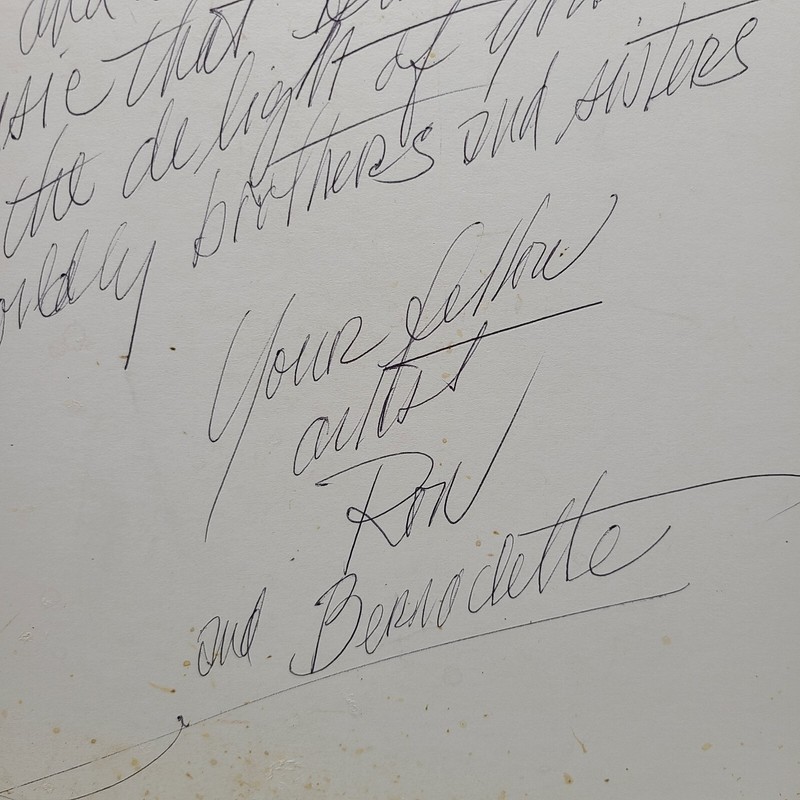 and
that
the delight of your
brothers and sisters
Your fellow
artist
Ron
and Bernadette